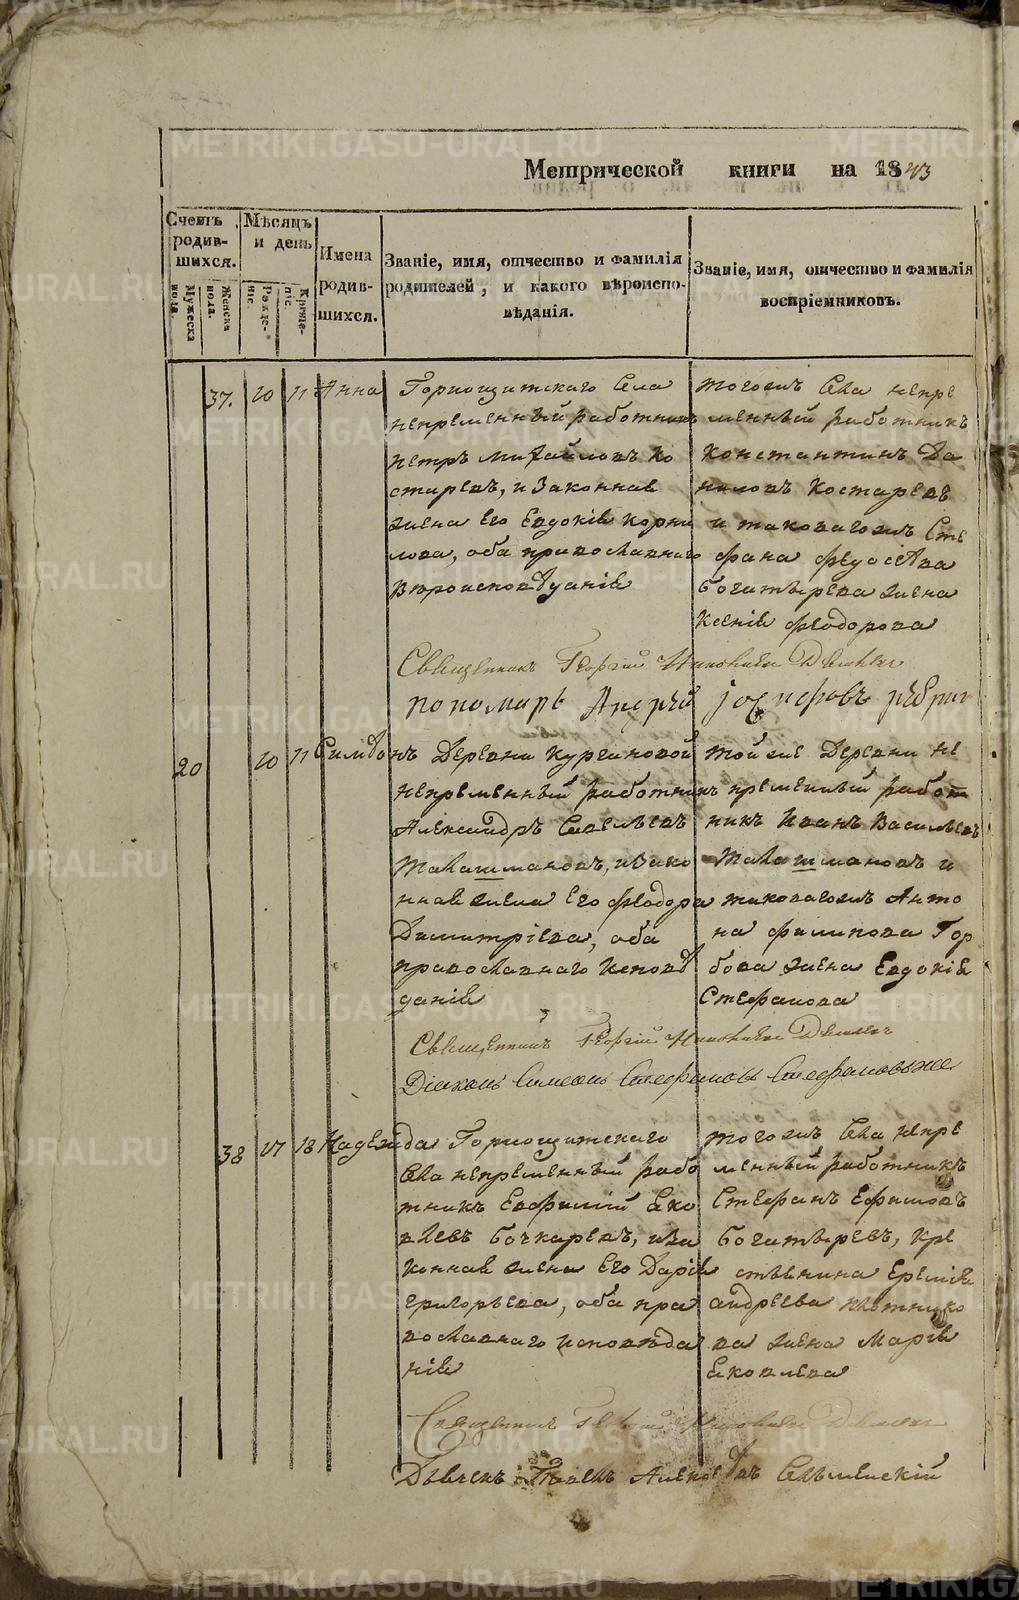 Метрической книги на 1843
Счетъ родив-шихся.
Мужеска пола.
Женска пола.
Мѣсяцъ и день
Рожде-нiс.
Креще-нiс.
Имена родив-шихся.
Званіе, имя, отчество и фамилія родителей, и какого вѣроиспо-вѣданія.
Званіе, имя, отчество и фамилія воспріемниковъ.
37. 10 11 Анна Горнощитскаго Села
непременный работникъ
Петръ Михайловъ Ко
стиревъ, и Законная
жена Его Евдокія Корни
лова, оба православнаго
Вѣроисповѣданія
тогожъ Села непре
менный работникъ
Константинъ Да
ниловъ Костаревъ
и таковагожъ Сте
фана Федосѣева
богатырева жена
Ксенія Феодорова
Священникъ Георгій
пономарь Андрей Іосифовъ
20 10 11 Симеонъ Деревни Кургановой
непременный работникъ
Александръ Савельевъ
Талашмановъ, и Зако
нная жена Его Феодора
Димитріева, оба
православнаго исповѣ
данія
той же Деревни не
пременный работ
никъ Иванъ Васильевъ
Талашмановъ и
таковагожъ Анто
на Филипова Гор
бова жена Евдокія
Стефанова
Священникъ Георгій
Діаконъ Симеонъ Стефановъ
38 17 18 Надежда Горнощитскаго
Села непременный рабо
тникъ Евфимій Яко
влевъ бочкаревъ, и За
конная жена Его Дарія
григорьева, оба пра
вославнаго исповѣда
нія
тогожъ Села непре
менный работникъ
Стефанъ Ефимовъ
богатыревъ, кре
стьянина Еремѣя
андреева Плотнико
ва жена Марія
Яковлева
Священникъ Георгій
Дьячекъ Павелъ Алексѣевъ